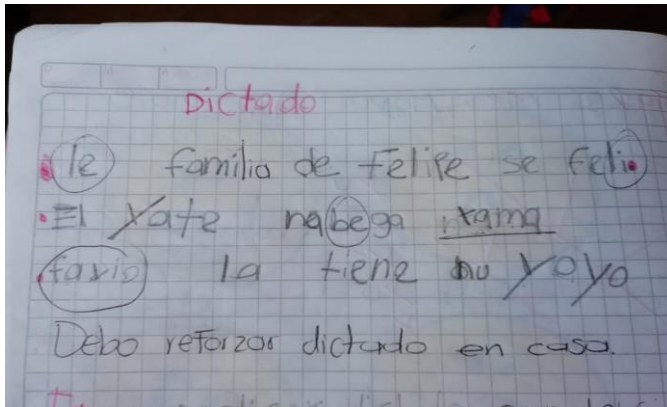 Dictado
le familia de Felipe se feli.
El yate nabega rama
favio la tiene nu yoyo
Debo reforzar dictado en casa.